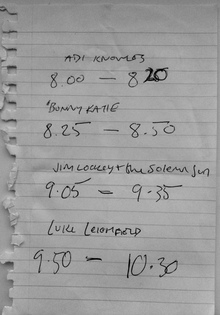 ADI KNOWLES
8.00 — 8 20
'BONNY KATIE
8.25 — 8.50
JIM LOCKEY + the SOLEMN SUN
9.05 — 9.35
LUKE LEIGHFIELD
9.50 — 10.30